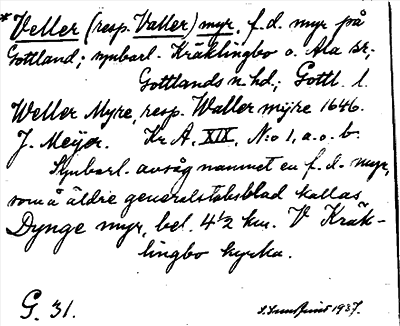 *Veller (resp. Valler) myr, f.d. myr på
Gottland; synbarl. Kräklingbo o. Ala sr,
Gottlands n. hd; Gottl. l.
Weller Myre, resp. Waller mÿre 1646.
J. Meijer. Kr A. XIX, N:o 1, a.o.b.
Synbarl. avsåg namnet en f.d. myr,
som å äldre generalstabsblad kallas
Dynge myr, bel. 4 1/2 km. V Kräk-
lingbo kyrka.
G. 31.
1937.